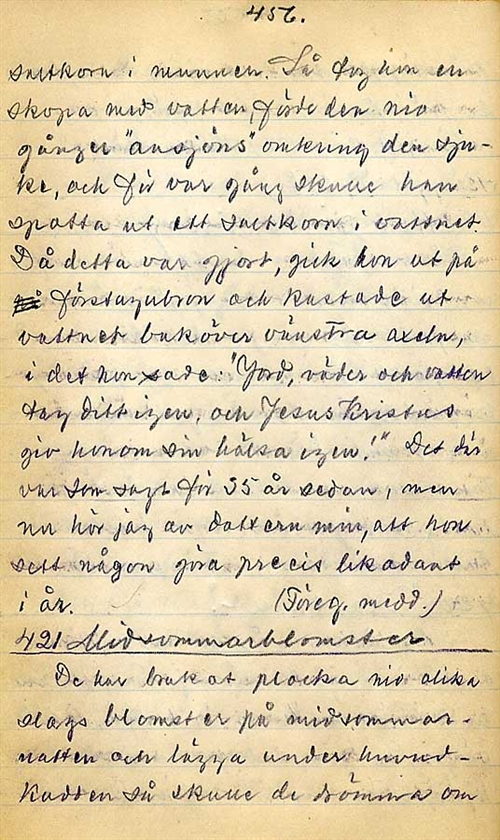 456.
saltkorn i munnen. Så tog hon en
skopa med vatten, förde den nio
gånger "ansjöns" omkring den sju-
ke, och för var gång skulle han
spotta ut ett saltkorn i vattnet.
Då detta var gjort, gick hon ut på
förstugubron och kastade ut
vattnet baköver vänstra axeln,
i det hon sade: "Jord, väder och vatten
tag ditt igen, och Jesus Kristus
giv honom sin hälsa igen!" Det där
var som sagt för 35 år sedan, men
nu hör jag av dottern min, att hon
sett någon göra precis likadant
i år. (Föreg. medd.)
421 Midsommarblomster
De har brukat plocka nio olika
slags blomster på midsommar-
natten och lägga under huvud-
kudden så skulle de drömma om